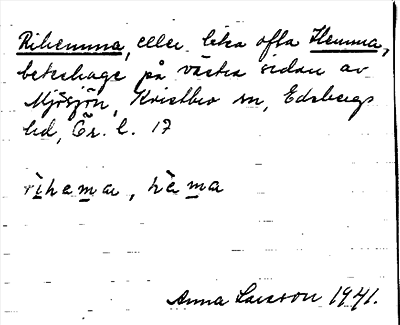 Rihemma, eller lika ofta Hemma,
beteshage på västra sidan av
Mjösjön, Kristbro sn, Edsbergs
hd, Ör. l. 17
rìhema, hèma
Anna Larsson 1941.